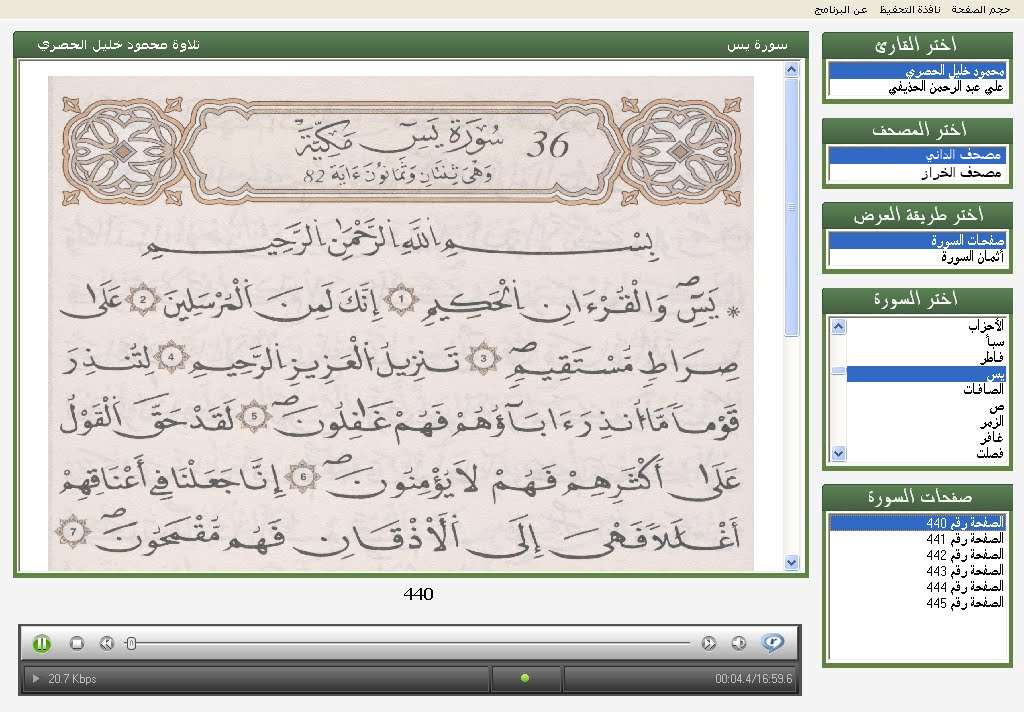 حجم الصفحة نافذة التحفيظ عن البرنامج
سورة يس
تلاوة محمود خليل الحصري
سُورَةُ يَسٓ مَكِّيَّة 36
وَهْىَ ثِنْتَانِ وَثَمَانُونَ ءَايَة 82
بِسْمِ اللَّهِ الرَّحْمَٰنِ الرَّحِيمِ
* يَسٓ وَالْقُرْءَانِ اِلْحَكِيمِ 1 إِنَّكَ لَمِنَ اَلْمُرْسَلِينَ 2 عَلَىٰ
صِرَاطٍ مُّسْتَقِيمٍ 3 تَنزِيلُ اُلْعَزِيزِ اِلرَّحِيمِ 4 لِتُنذِرَ
قَوْماً مَّا أُنذِرَ ءَابَآؤُهُمْ فَهُمْ غَٰفِلُونَ 5 لَقَدْ حَقَّ اَلْقَوْلُ
عَلَىٰ أَكْثَرِهِمْ فَهُمْ لَا يُؤْمِنُونَ 6 إِنَّا جَعَلْنَا فِے أَعْنَٰقِهِمْ
أَغْلَٰلًا فَهْىَ إِلَى اَلْأَذْقَانِ فَهُم مُّقْمَحُونَ 7
440
20.7 Kbps
00:04.4/16:59.6
اختر القارئ
محمود خليل الحصري
علي عبد الرحمن الحذيفي
اختر المصحف
مصحف الداني
مصحف الخراز
اختر طريقة العرض
صفحات السورة
أثمان السورة
اختر السورة
الأحزاب
سبأ
فاطر
يس
الصافات
ص
الزمر
غافر
فصلت
صفحات السورة
الصفحة رقم 440
الصفحة رقم 441
الصفحة رقم 442
الصفحة رقم 443
الصفحة رقم 444
الصفحة رقم 445